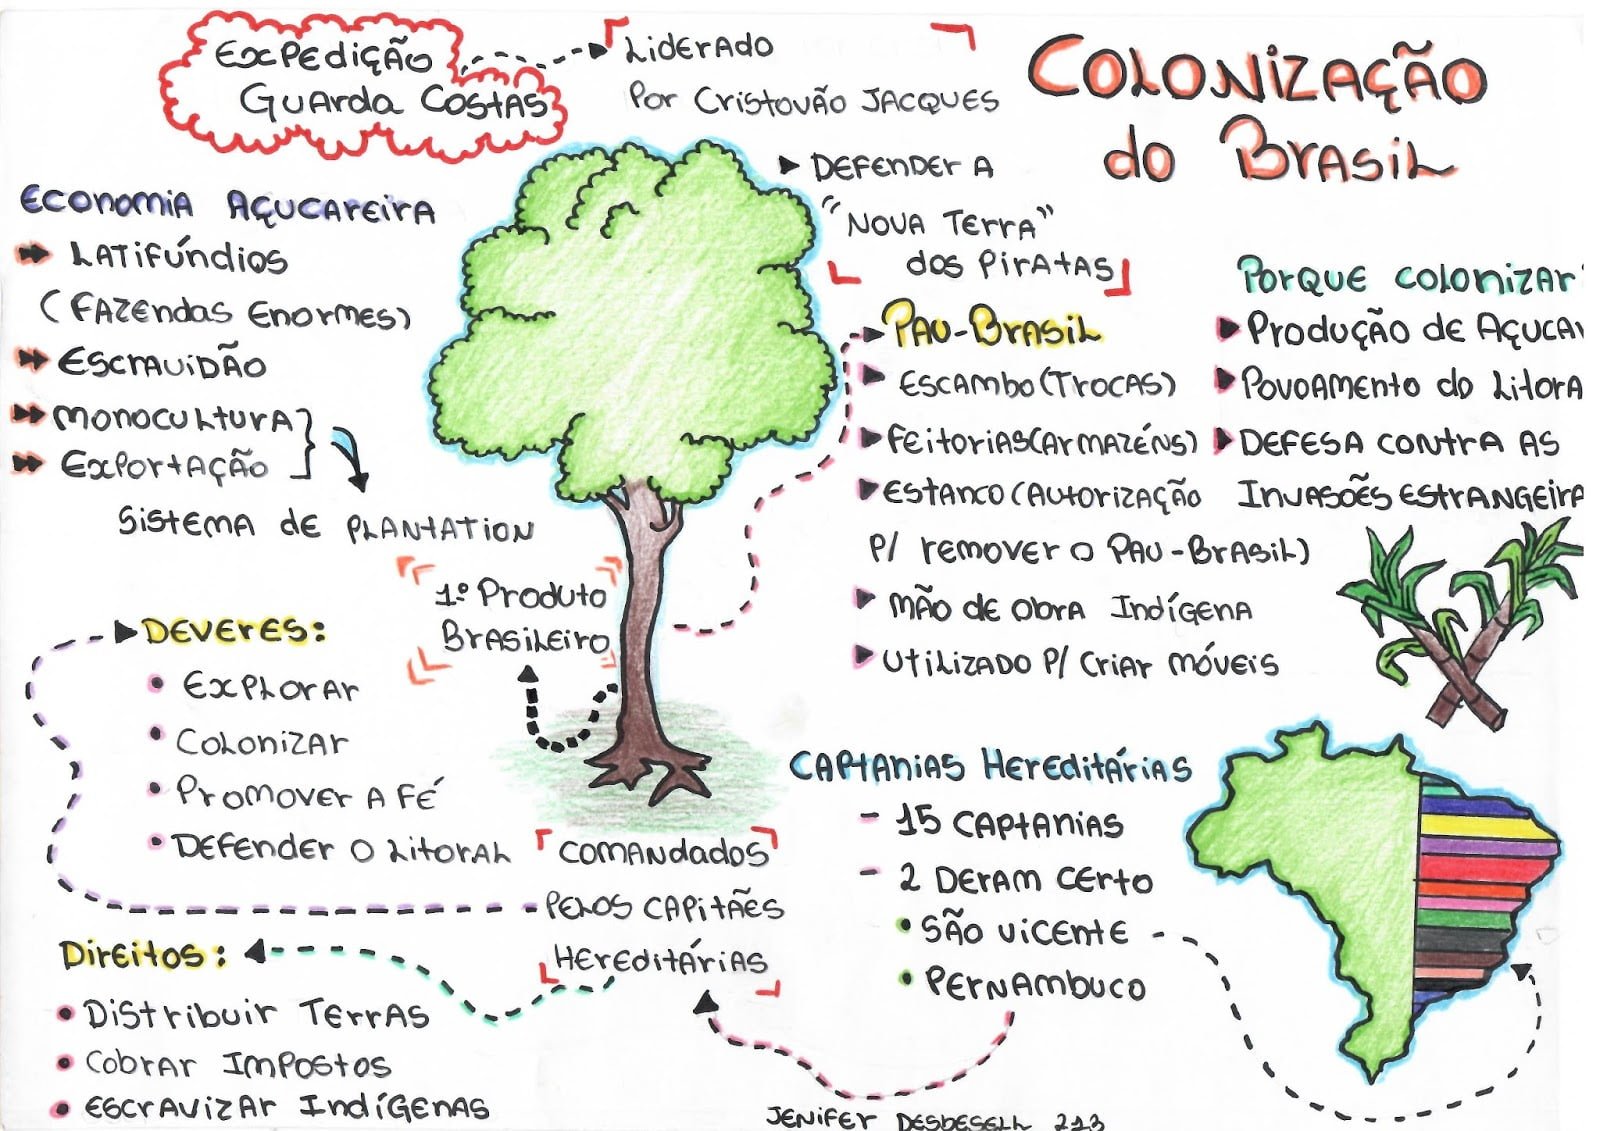 Expedição
Guarda Costas
Liderado
Por Cristovão Jacques
Defender a
"Nova Terra"
dos Piratas
Colonização
do Brasil
Economia Açucareira
Latifúndios
(Fazendas Enormes)
Escravidão
Monocultura
Exportação
Sistema de Plantation
1º Produto
Brasileiro
Pau-Brasil
Escambo (Trocas)
Feitorias (Armazéns)
Estanco (Autorização
p/ remover o Pau-Brasil)
Mão de obra Indígena
Utilizado p/ criar móveis
Porque colonizar
Produção de Açuca
Povoamento do Litora
Defesa contra as
Invasões Estrangeira
Deveres:
Explorar
Colonizar
Promover a Fé
Defender o Litoral
Comandados
Pelos Capitães
Hereditárias
Direitos:
Distribuir Terras
Cobrar Impostos
Escravizar Indígenas
Captanias Hereditárias
- 15 Captanias
- 2 Deram certo
São Vicente
Pernambuco
Jenifer Desbesell 213